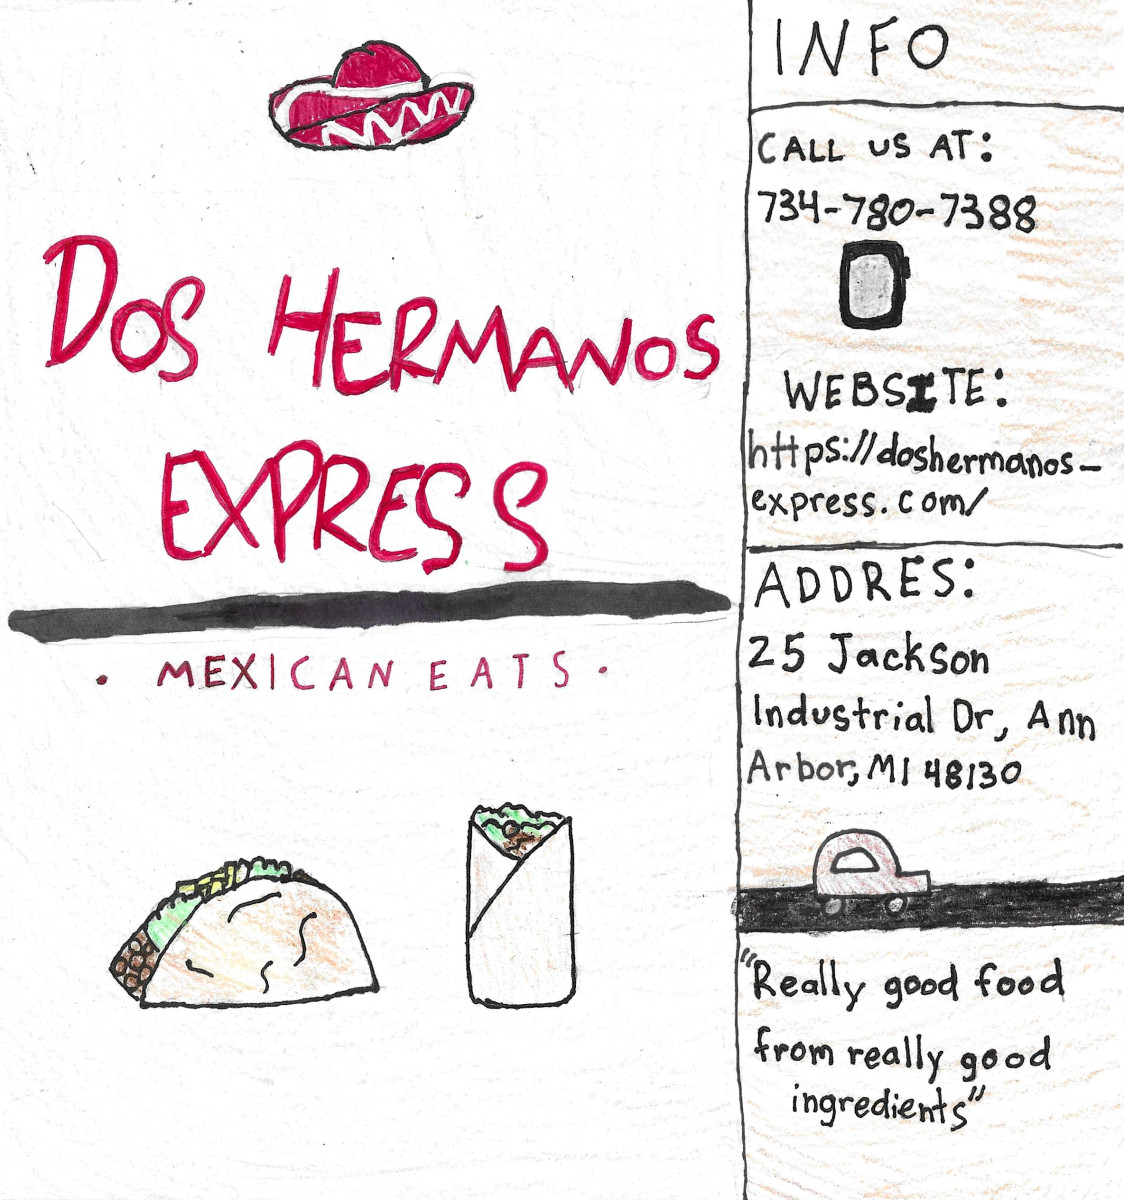 DOS HERMANOS
EXPRESS
· MEXICAN EATS ·
INFO
CALL US AT:
734-780-7388
WEBSITE:
https://doshermanos-
express.com/
ADDRES:
25 Jackson
Industrial Dr, Ann
Arbor, MI 48130
"Really good food
from really good
ingredients"